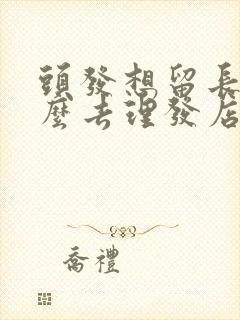 頭發想留長
麼去理發店
喬禮